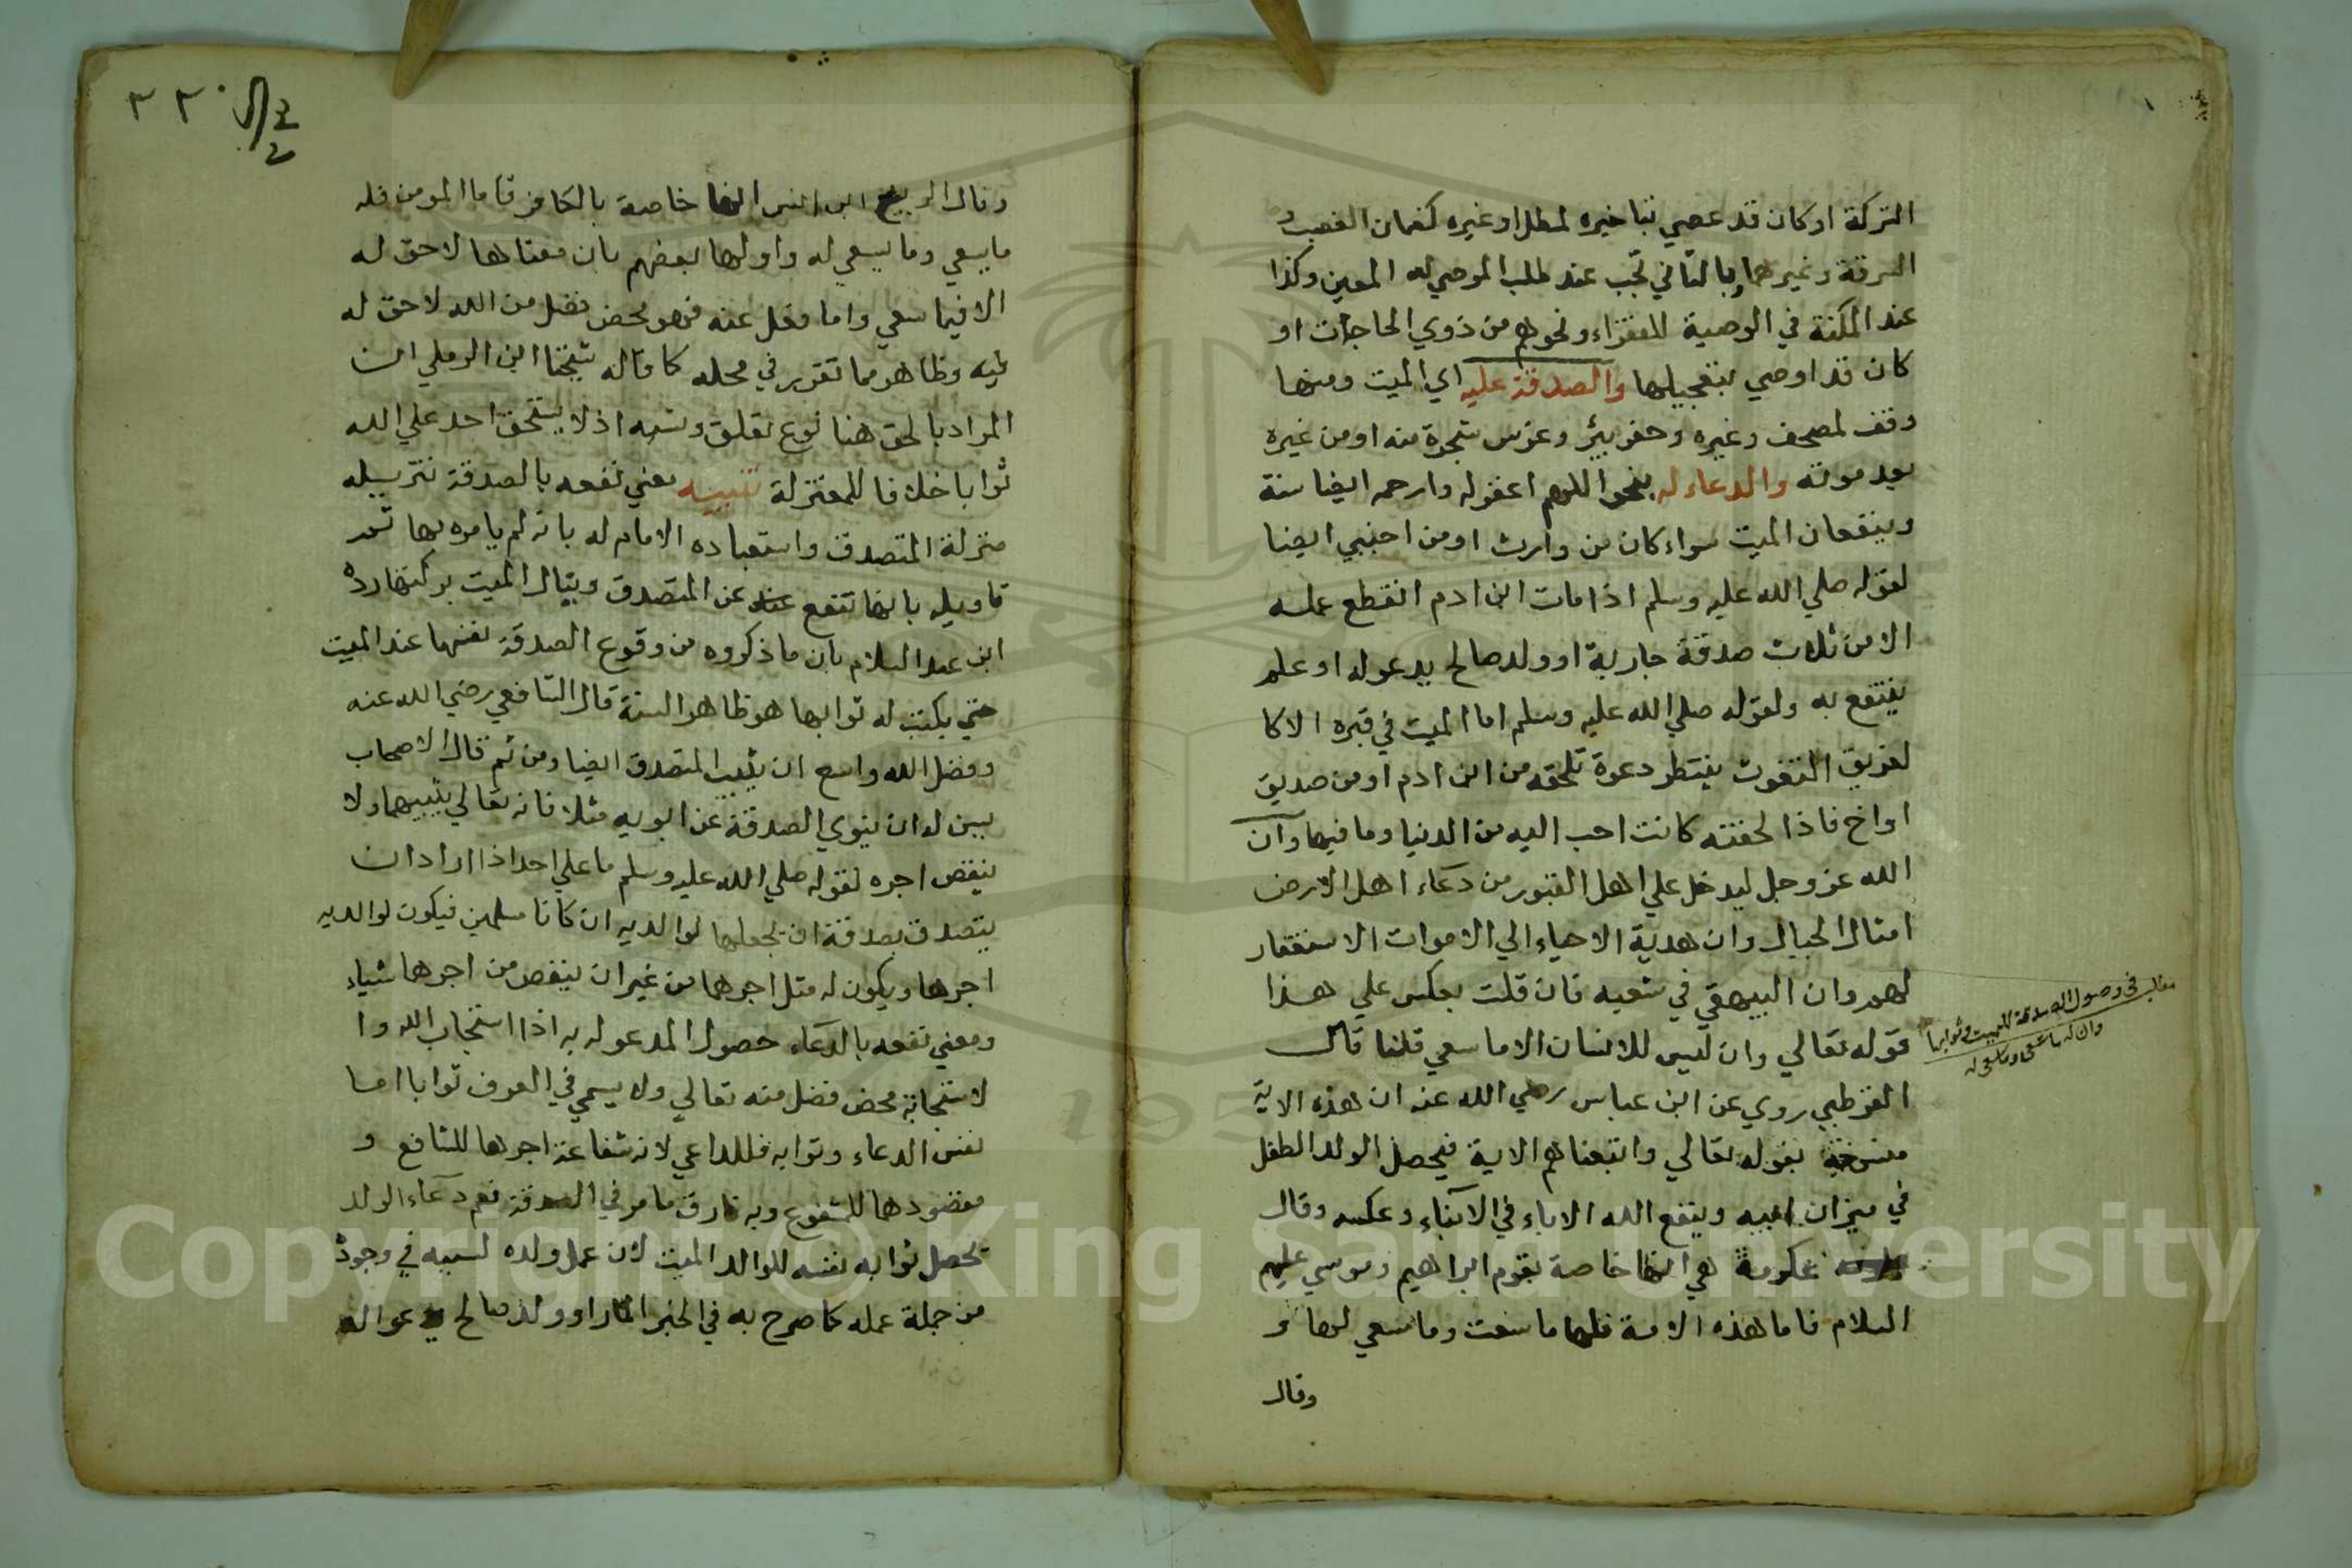 التركة او كان قد عصي بتاخيره لمطل او غيره كضمان الغصب و
السرقة وغيرهما وبالتاني تجب عند طلب الموصي له المعين وكذا
عند المكنة في الوصية للفقراء ونحوهم من ذوي الحاجات او
كان قد اوصي بتعجيلها والصدقة عليه اي الميت ومنها
وقف لمصحف وغيره وحفر بير وغرس شجرة منه او من غيره
بعد موته والدعاء له بنحو اللهم اغفر له وارحمه ايضا سنة
وينفعان الميت سواء كان من وارث او من اجنبي ايضا
لقوله صلي الله عليه وسلم اذا مات ابن ادم انقطع عمله
الا من ثلاث صدقة جارية او ولد صالح يدعو له او علم
ينتفع به ولقوله صلي الله عليه وسلم اما الميت في قبره الا كا
لغريق المتغوث ينتظر دعوة تلحقه من ابن ادم او من صديق
او اخ فاذا لحقته كانت احب اليه من الدنيا وما فيها وان
الله عز وجل ليدخل علي اهل القبور من دعاء اهل الارض
امثال الجبال وان هدية الاحياء الي الاموات الاستغفار
لهم وان البيهقي في شعبه فان قلت يعكس علي هذا
قوله تعالي وان ليس للانسان الا ما سعي قلنا قال
القرطبي روي عن ابن عباس رضي الله عنه ان هذه الاية
منسوخة بقوله تعالي واتبعناهم الاية فيحصل الولد الطفل
في ميزان ابيه وينفع الله الاباء في الابناء وعكسه وقال
عكرمة هي انها خاصة بقوم ابراهيم وموسي عليهم
السلام فاما هذه الامة فلها ما سعت وما سعي لها و
وقال
مطلب في وصول الصدقة للميت وثوابها
وان له ما سعى وما سعي له
٢٢٠
وقال الربيع ابن انس انها خاصة بالكافر فاما المومن فله
ما يسعي وما يسعي له واولها بعضهم بان معناها لا حق له
الا فيما سعي واما فعل عنه فهو محض فضل من الله لا حق له
فيه وظاهر مما تقرر في محله كما قاله شيخنا ابن الرملي ان
المراد بالحق هنا نوع تعلق ونسبه اذ لا يستحق احد علي الله
ثوابا خلافا للمعتزلة تنبيه معني نفعه بالصدقة تنزيله
منزلة المتصدق واستبعاده الامام له بانه لم يامره بها ثم
تاويله بانها تقع عنه عن المتصدق وينال الميت بركتها رده
ابن عبد السلام بان ما ذكروه من وقوع الصدقة نفسها عند الميت
حتي يكتب له ثوابها هو ظاهر السنة قال الشافعي رضي الله عنه
وفضل الله واسع ان يثيب المتصدق ايضا ومن ثم قال الاصحاب
يسن له ان ينوي الصدقة عن ابويه مثلا فانه تعالي يثيبهما ولا
ينقص اجره لقوله صلي الله عليه وسلم ما علي احد اذا اراد ان
يتصدق بصدقة ان يجعلها لوالديه ان كانا مسلمين فيكون لوالديه
اجرها ويكون له مثل اجرهما من غير ان ينقص من اجرهما شياء
ومعني نفعه بالدعاء حصول المدعو له به اذا استجاب الله وا
لاستجابة محض فضل منه تعالي ولا يسمي في العرف ثوابا اما
نفس الدعاء وثوابه فللداعي لانه شفاعة اجرها للشافع و
مقصودها للمشفوع وبه فارق ما مر في الصدقة نعم دعاء الولد
يحصل ثوابه نفسه للوالد الميت لان عمل ولده لسببه في وجوده
من جملة عمله كما صرح به في الخبر المار او ولد صالح يدعو له
Copyright © King Saud University